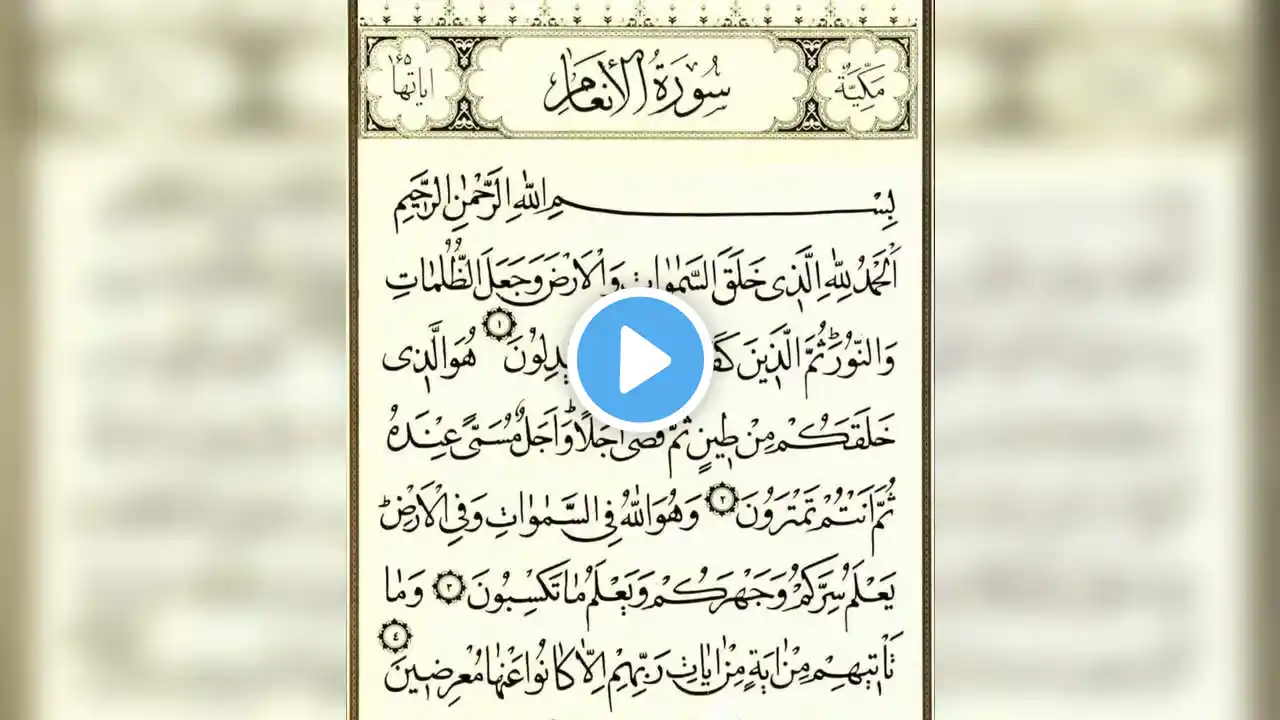 مَكِّيَّةٌ
سُورَةُ الْأَنْعَامِ
اٰيَاتُهَا ١٦٥
بِسْمِ اللّٰهِ الرَّحْمٰنِ الرَّحِيمِ
اَلْحَمْدُ لِلّٰهِ الَّذِى خَلَقَ السَّمٰوَاتِ وَالْاَرْضَ وَجَعَلَ الظُّلُمَاتِ
وَالنُّورَ ثُمَّ الَّذِينَ ١ هُوَ الَّذِى
خَلَقَكُمْ مِنْ طِينٍ ثُمَّ قَضٰى اَجَلًا وَاَجَلٌ مُسَمًّى عِنْدَهُ
ثُمَّ اَنْتُمْ تَمْتَرُونَ ٢ وَهُوَ اللّٰهُ فِى السَّمٰوَاتِ وَفِى الْاَرْضِ
يَعْلَمُ سِرَّكُمْ وَجَهْرَكُمْ وَيَعْلَمُ مَا تَكْسِبُونَ ٣ وَمَا
تَأْتِيهِمْ مِنْ اٰيَةٍ مِنْ اٰيَاتِ رَبِّهِمْ اِلَّا كَانُوا عَنْهَا مُعْرِضِينَ ٤